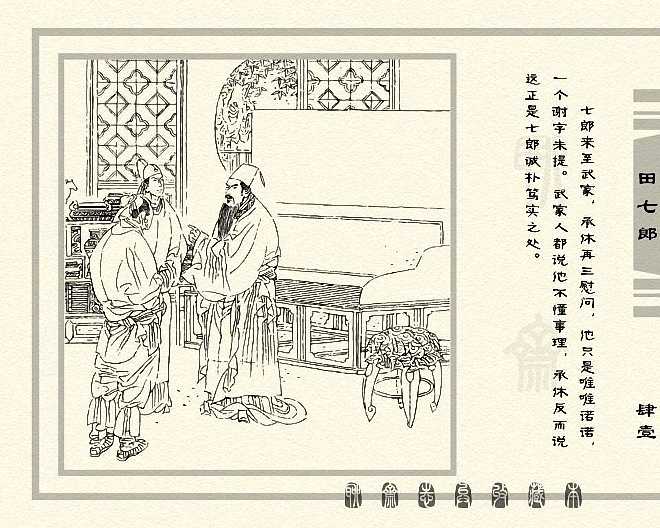 七郎来至武家，承休再三慰问，他只是唯唯诺诺，
一个谢字未提。武家人都说他不懂事理，承休反而说
这正是七郎诚朴笃实之处。
田七郎
肆壹
聊斋志异收藏本